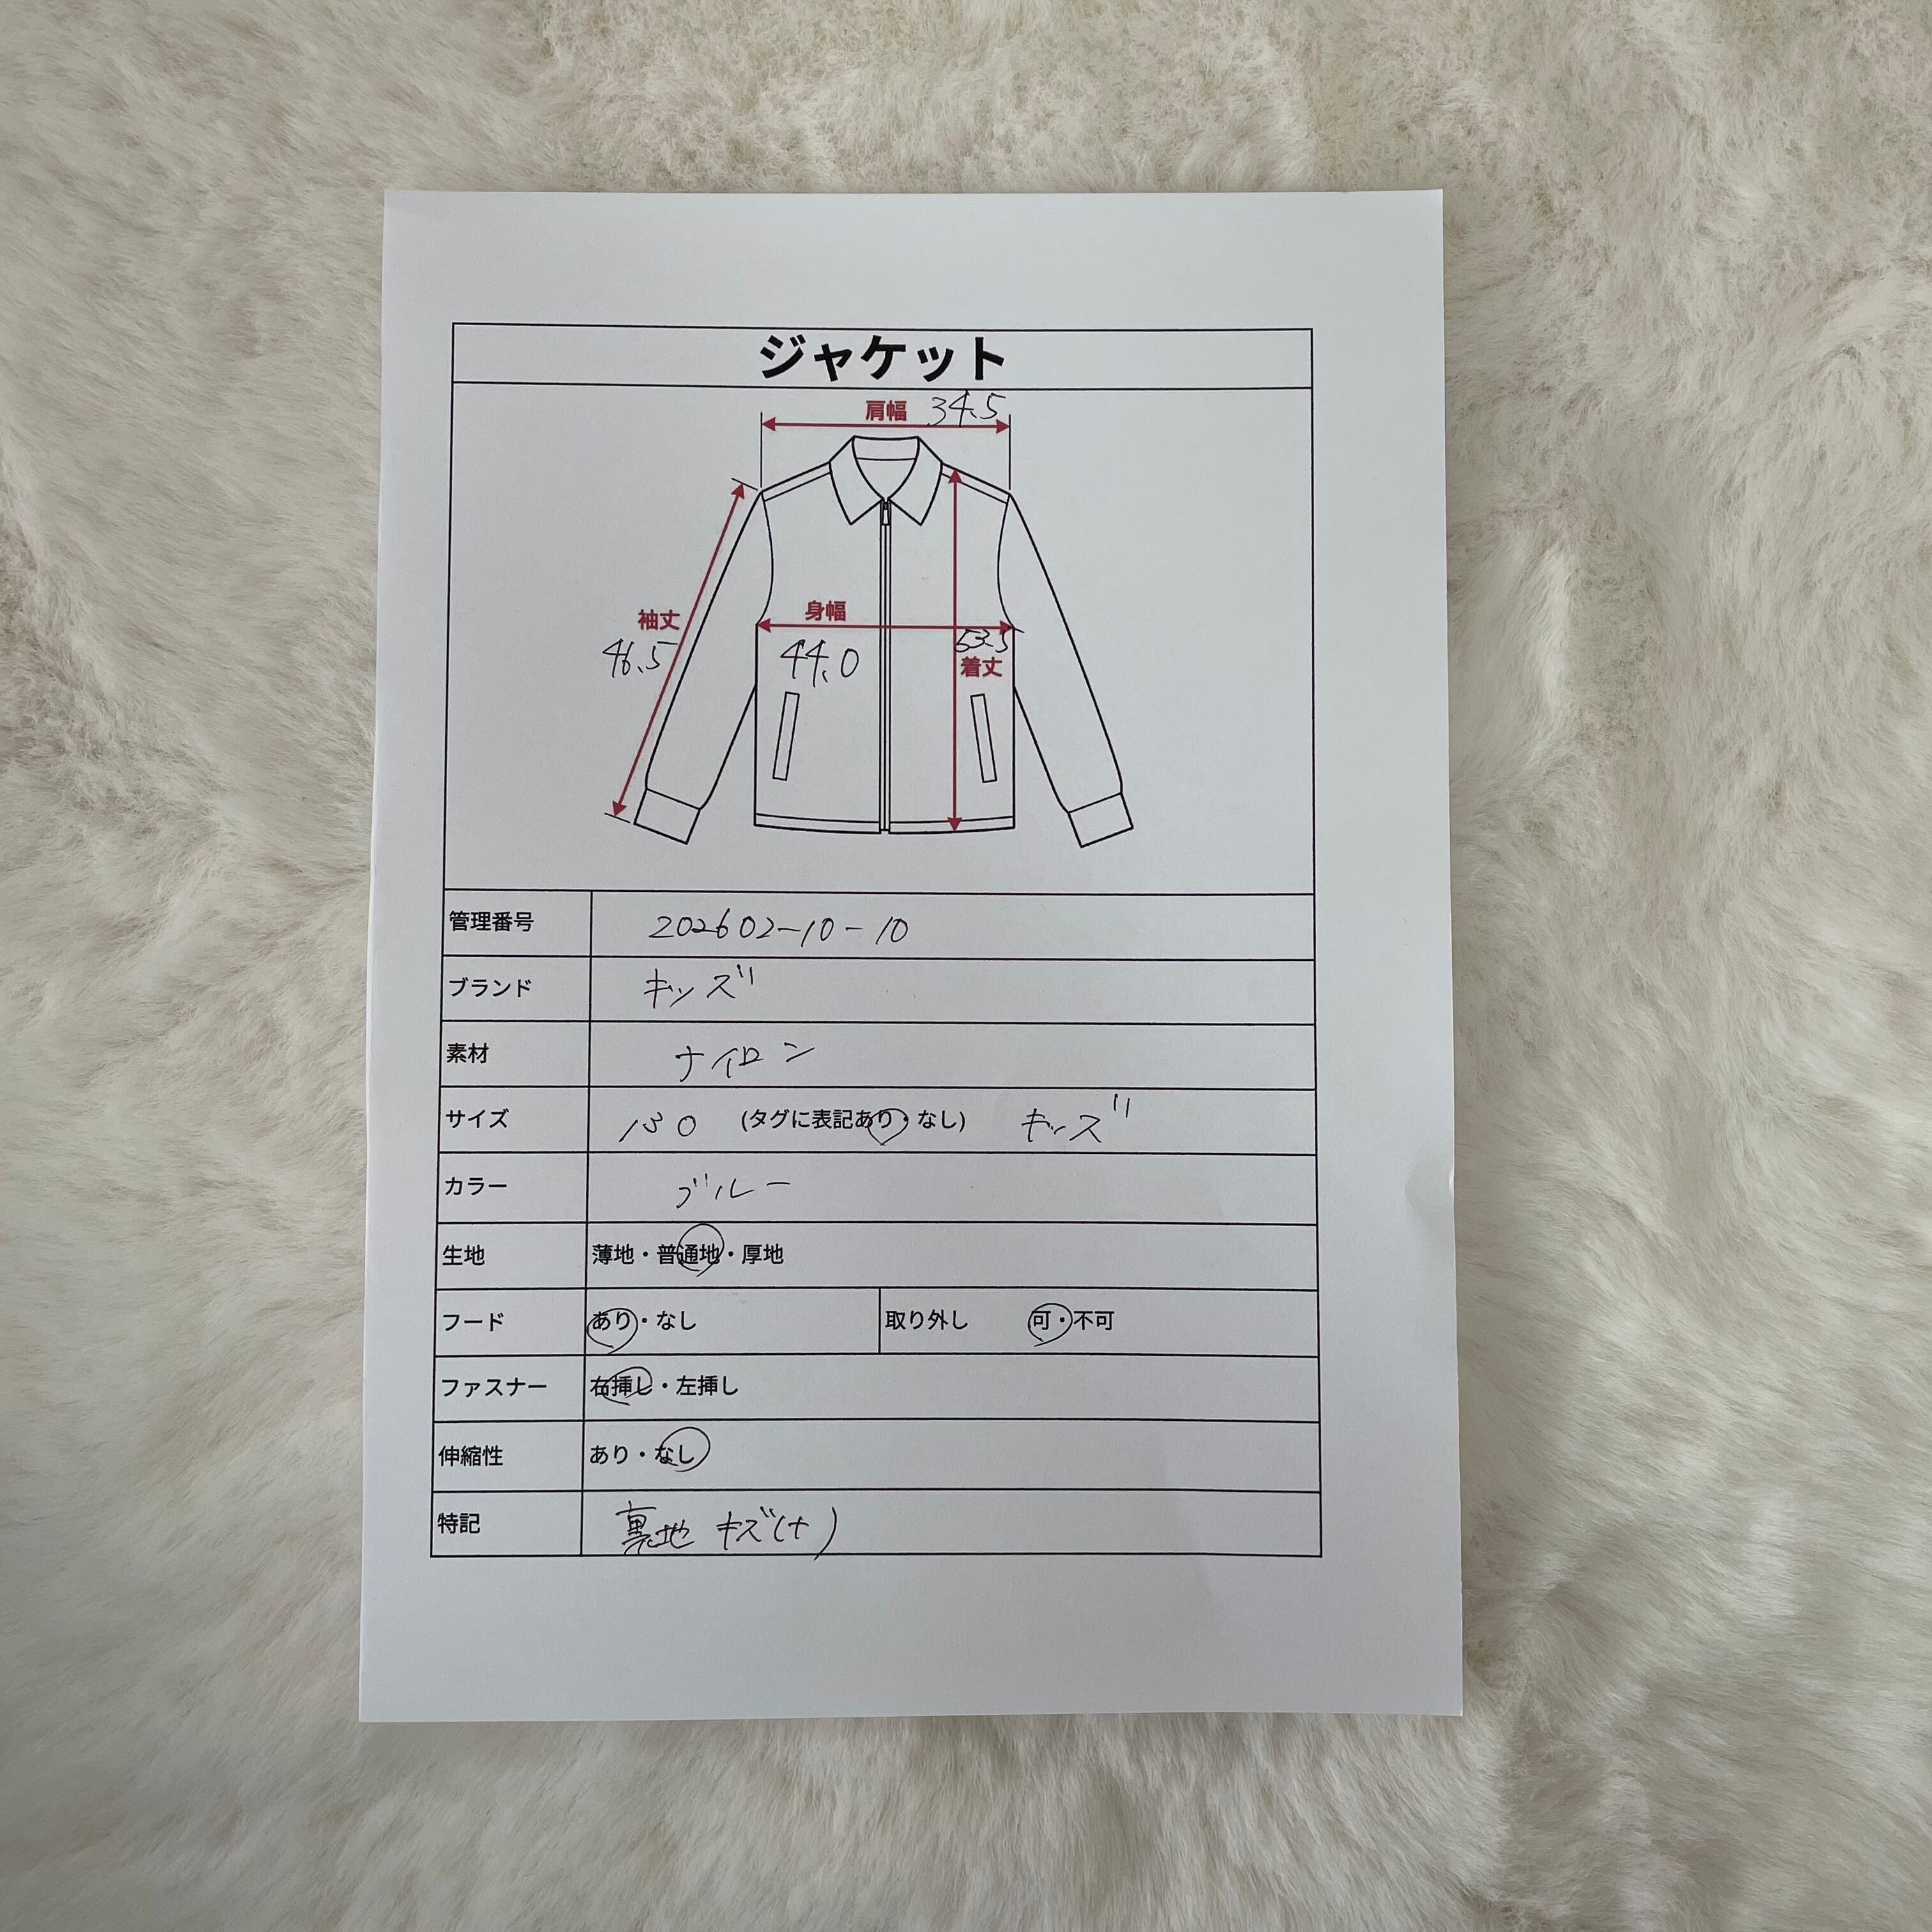 ジャケット
肩幅 34.5
袖丈
46.5
身幅
44.0
53.5
着丈
管理番号 202602-10-10
ブランド キッズ
素材 ナイロン
サイズ 130 (タグに表記あり・なし) キッズ
カラー ブルー
生地 薄地・普通地・厚地
フード あり・なし 取り外し 可・不可
ファスナー 右挿し・左挿し
伸縮性 あり・なし
特記 裏地 キズ(+)